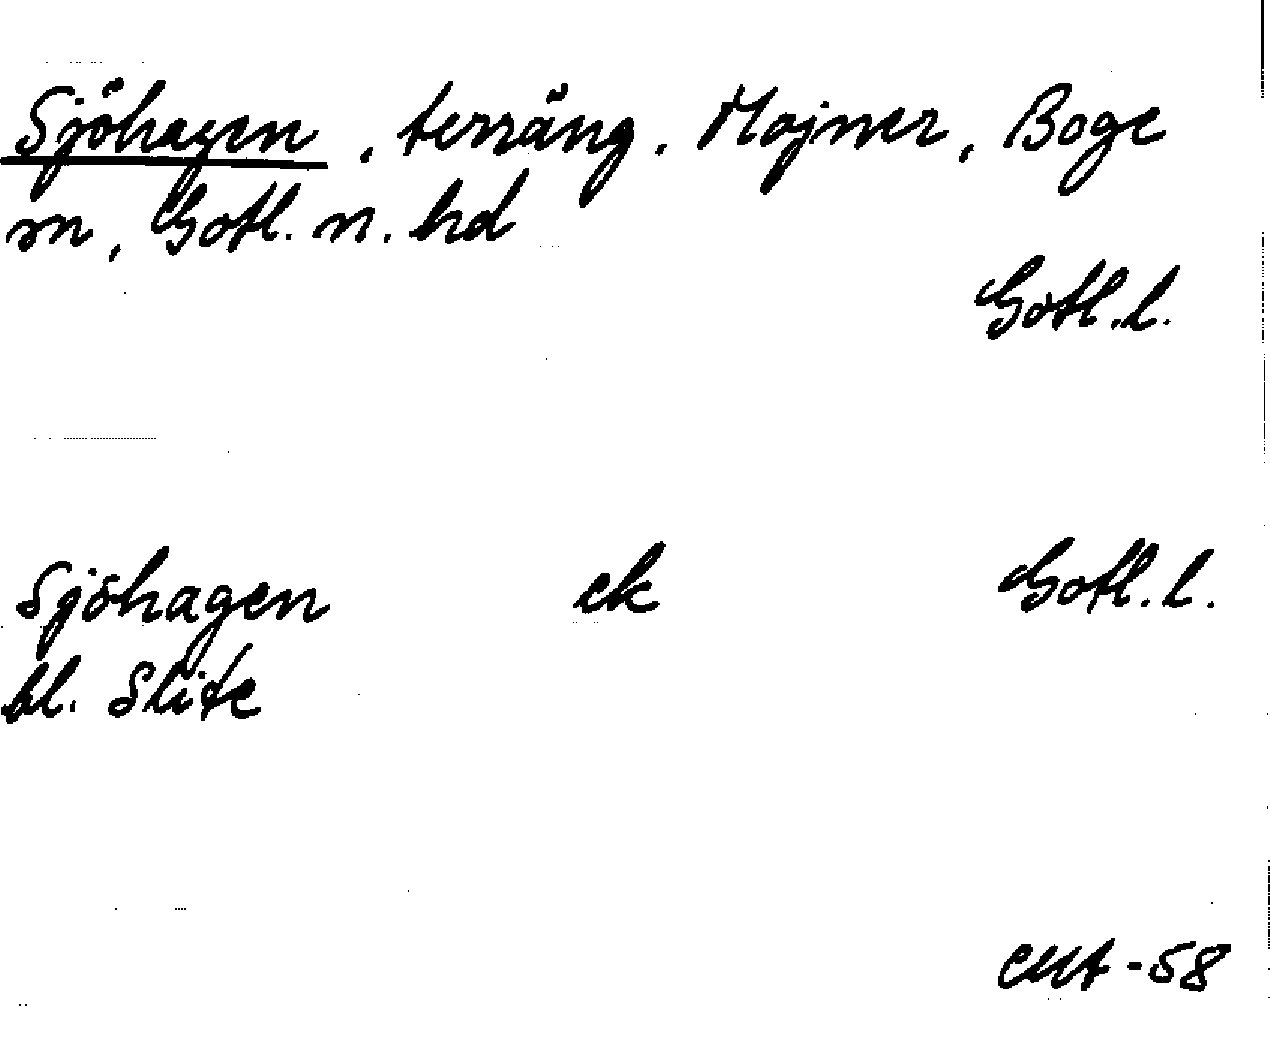 Sjöhagen, terräng, Mojner, Boge
sn, Gotl. n. hd
Gotl. l.
Sjöhagen ek Gotl. l.
bl. Slite
-58